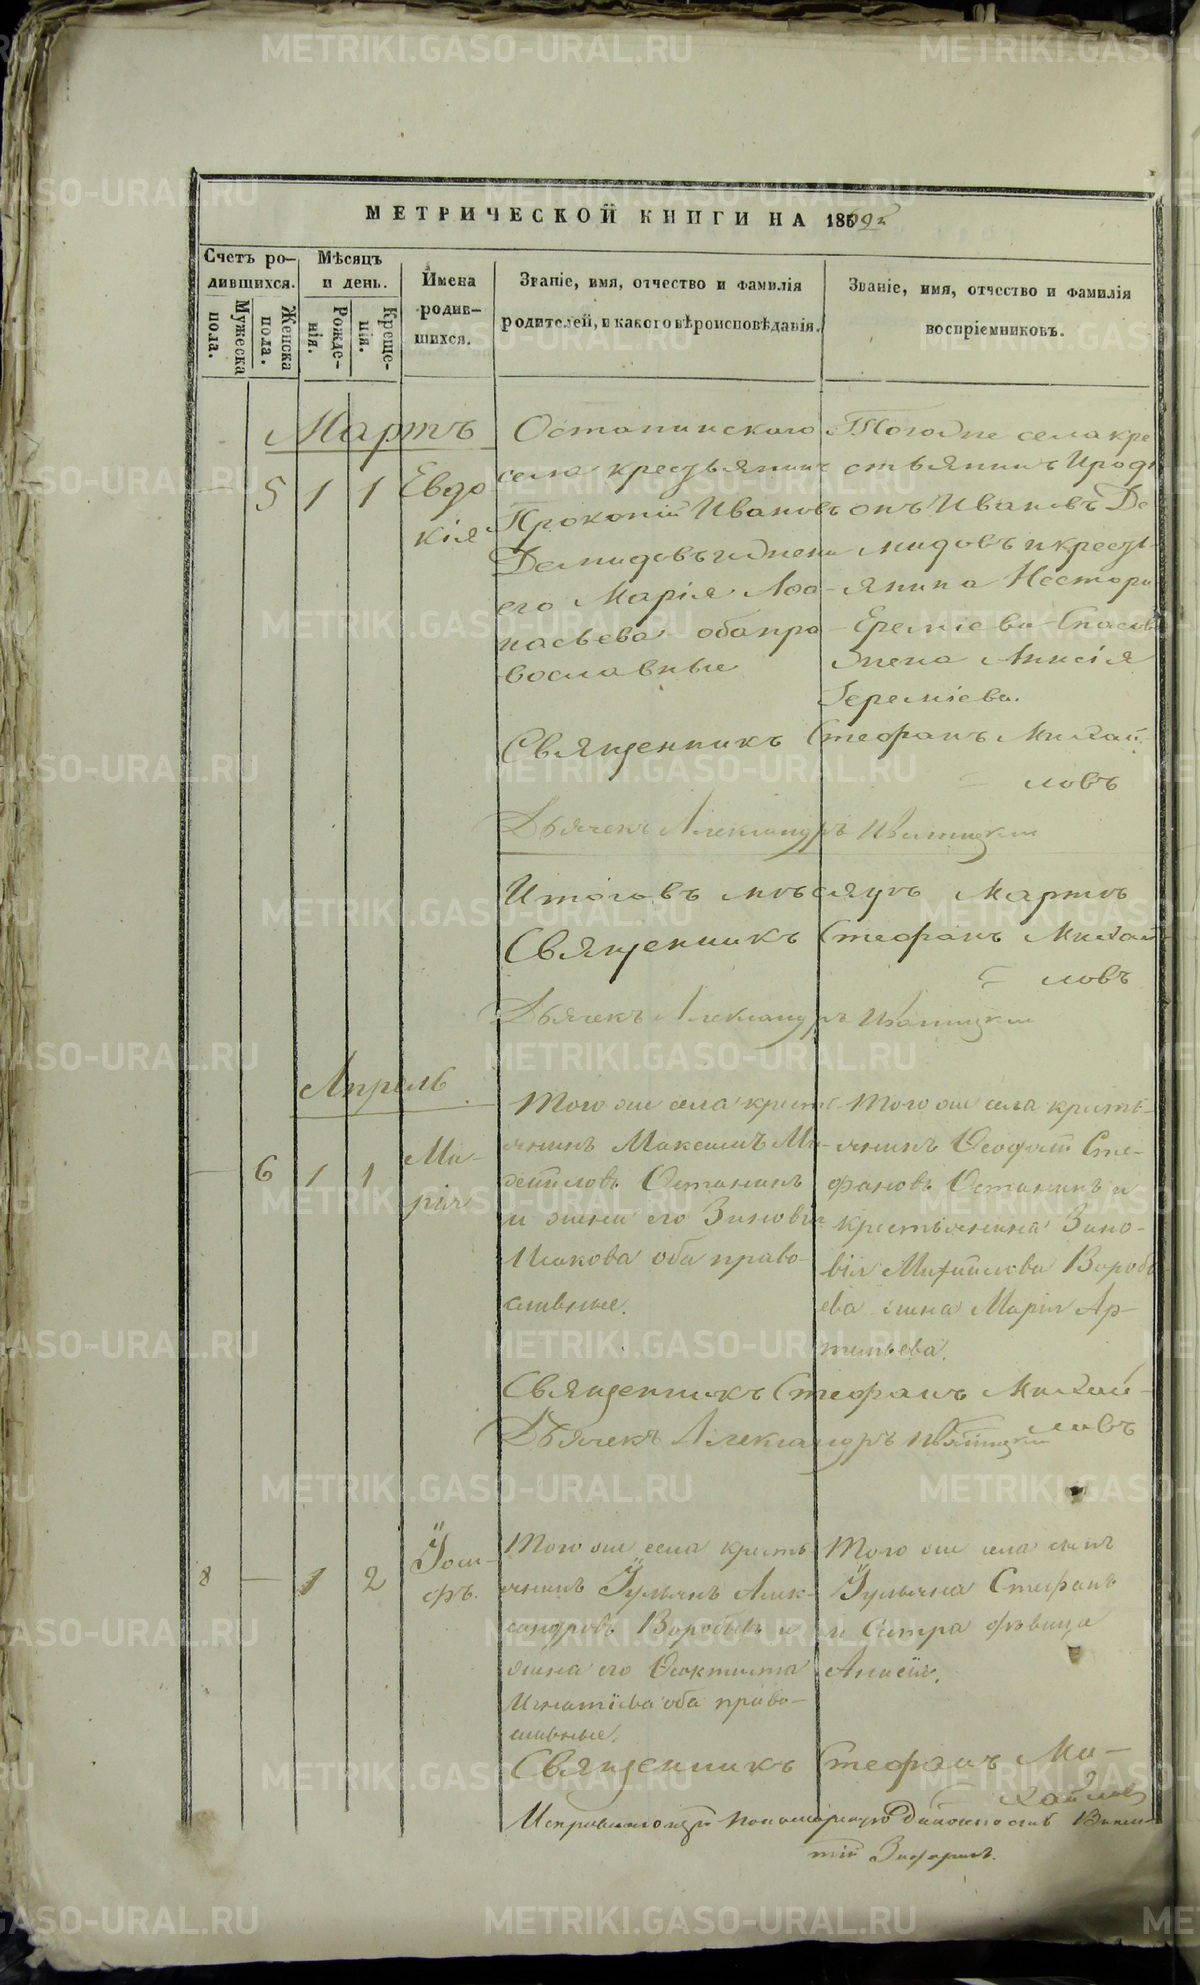 МЕТРИЧЕСКОЙ КНИГИ НА 186
Счетъ ро-
дившихся.
Мужеска
пола.
Женска
пола.
Мѣсяцъ
и день.
Рожде-
нія.
Креще-
нія.
Имена
родив-
шихся.
Званіе, имя, отчество и фамилія
родителей, и какого вѣроисповѣданія.
Званіе, имя, отчество и фамилія
воспріемниковъ.
Мартъ
5 1 1
Евдо
кія
Останинскаго
села крестьянинъ
Прокопій Ивановъ
Демидовъ и жена
его Марія Афа-
насьева оба пра-
вославные
Тогоже села кре
стьянинъ Ироді
онъ Ивановъ Де
мидовъ и кресть
янина Нестора
Еремѣева
жена Анисія
Еремѣева.
Священникъ Стефанъ Михай-
ловъ
Дьячекъ Александръ
Итого въ мѣсяцѣ Мартѣ
Священникъ Стефанъ Михай
ловъ
Дьячекъ Александръ
Апрель
— 6 1 1
Ма-
рія
Того же села кресть-
янинъ Максимъ Ми-
хайловъ Останинъ
и жена его Зиновія
Исакова оба право-
славные.
Того же села кресть-
янинъ Феофанъ Сте-
фановъ Останинъ и
крестьянина Зино-
вія Михайлова Воробь
ева жена Марія Ар-
темьева.
Священникъ Стефанъ Михай-
ловъ
Дьячекъ Александръ
8 — 1 2
Іоси-
фъ.
Того же села кресть
янинъ Іульянъ Алек-
сандровъ Воробьевъ и
жена его Феоктиста
Игнатіева оба право-
славные.
Того же села сынъ
Іульяна Стефанъ
и Сестра дѣвица
Анисія.
Священникъ Стефанъ Ми-
хайловъ
Исправляющій Пономарскую Должность Викен-
тій